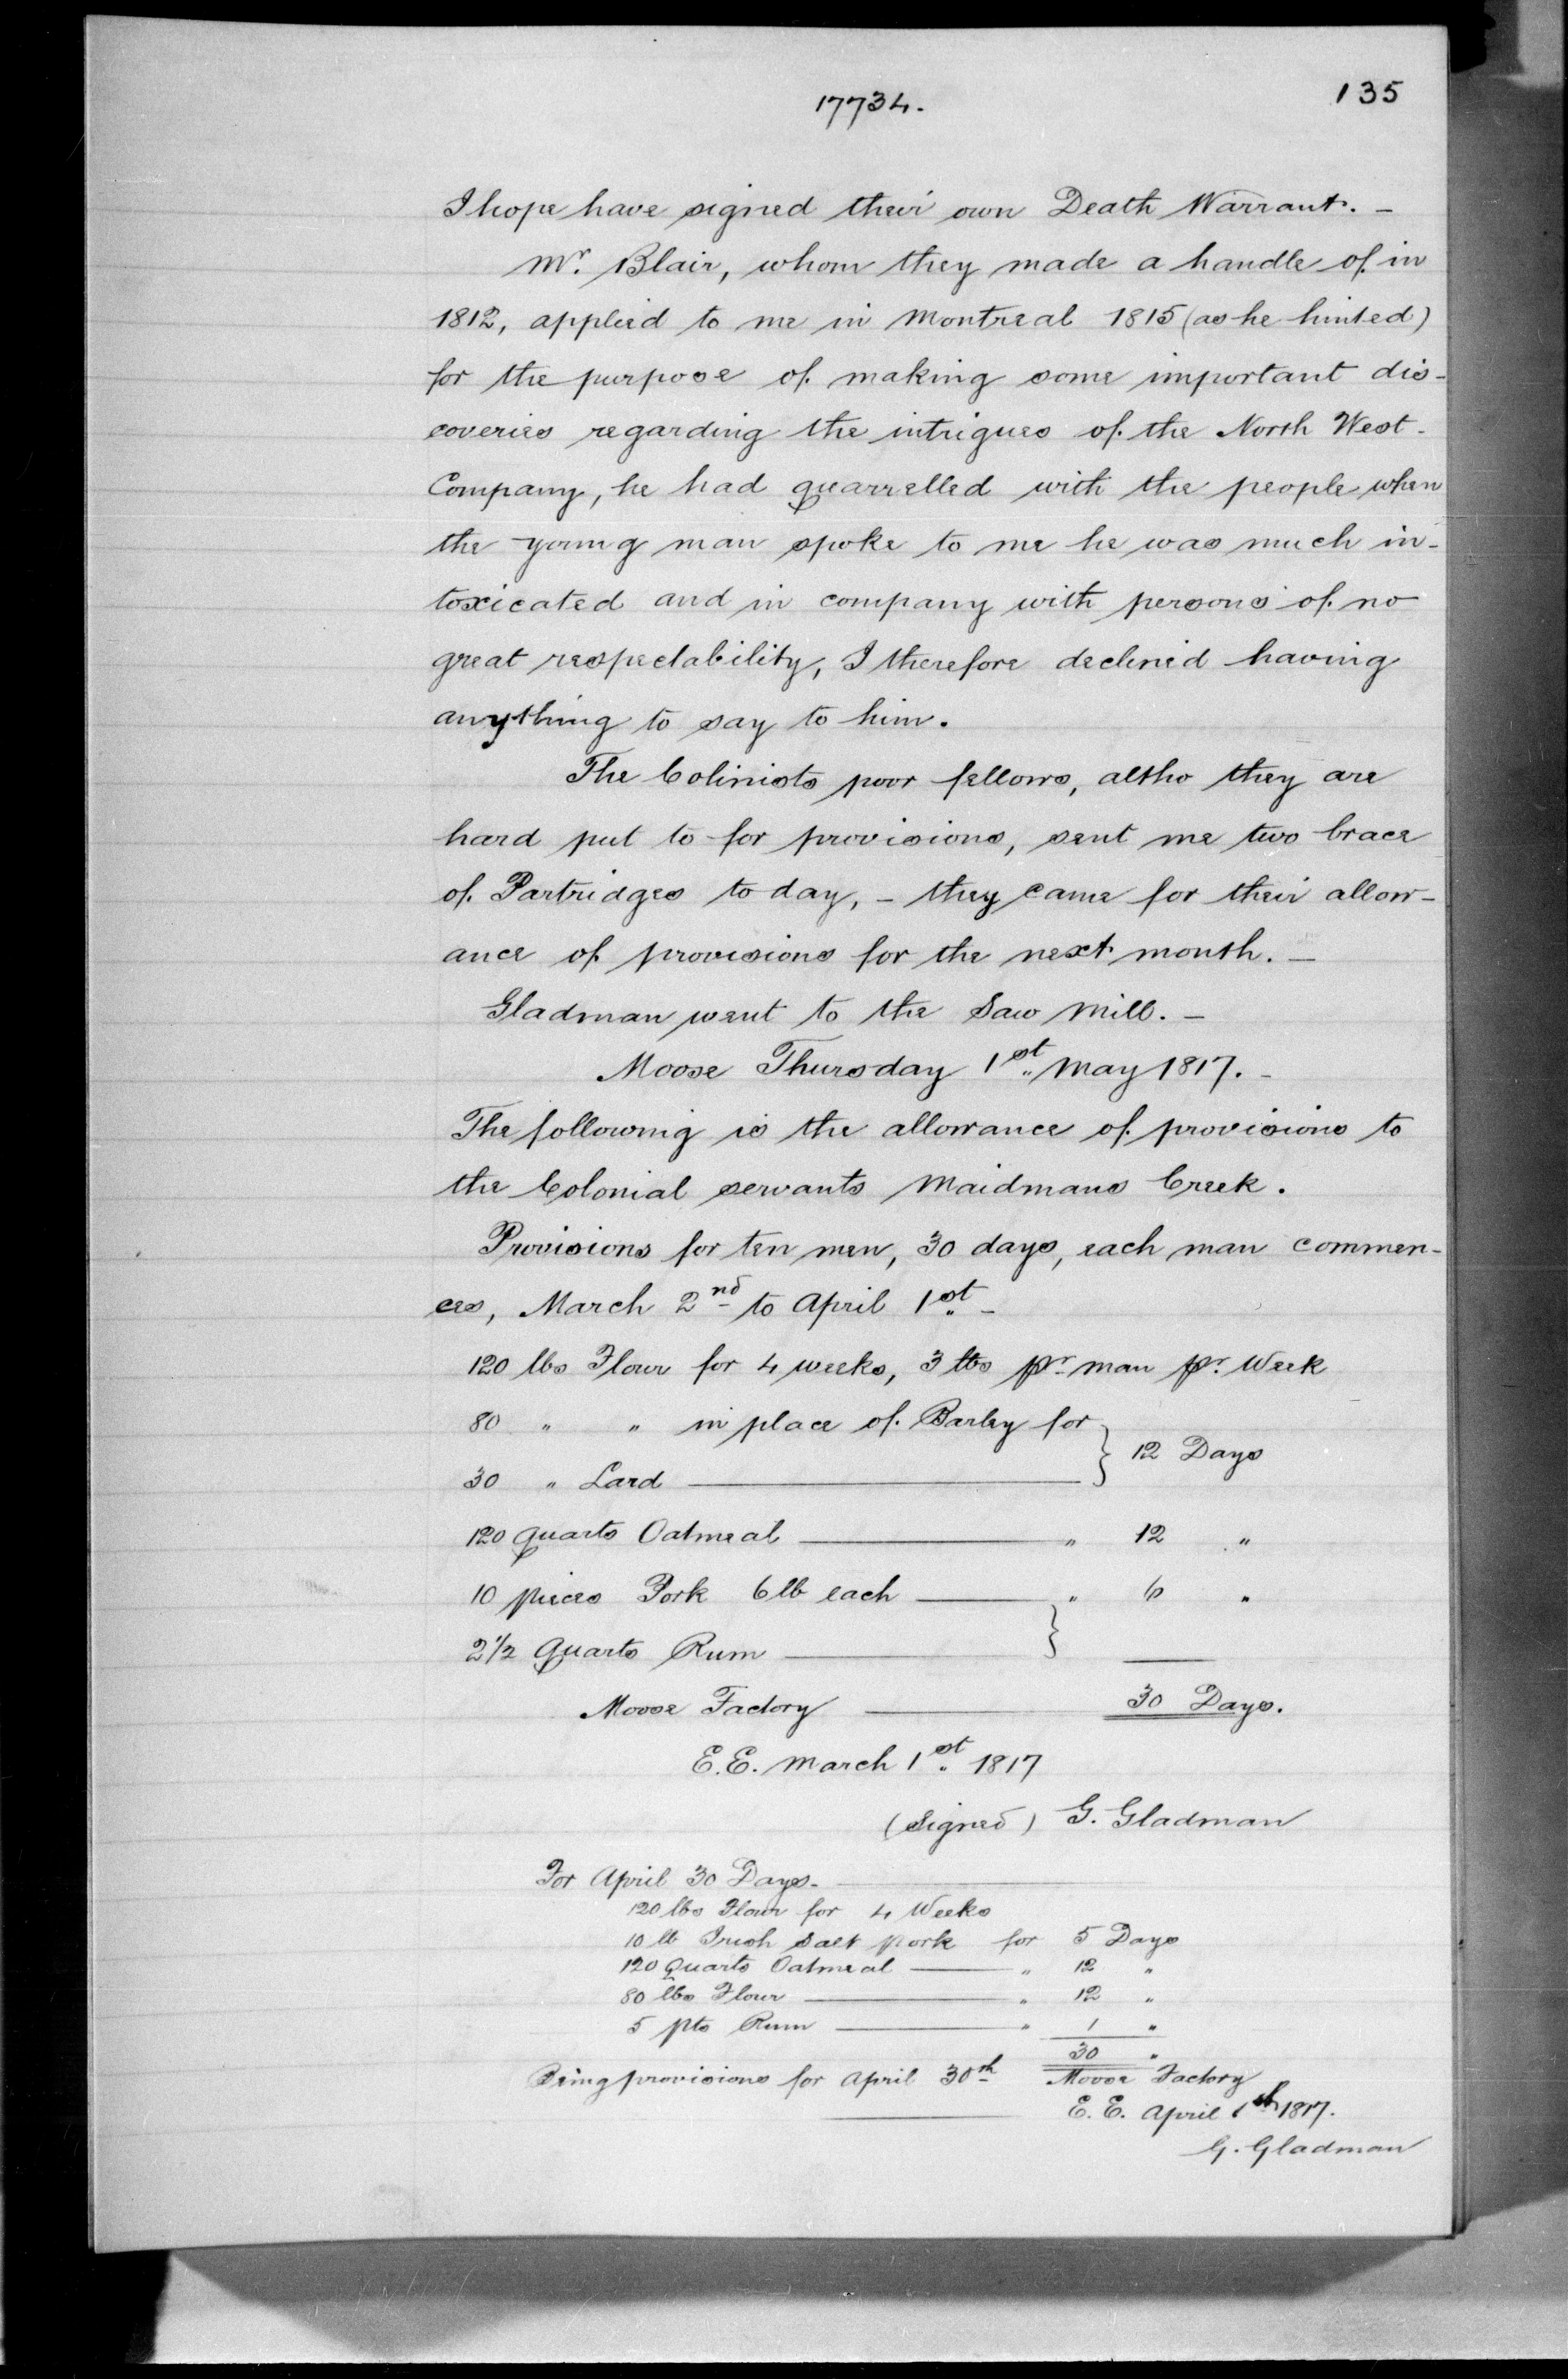 17734.
135
I hope have signed their own Death Warrant. –
Mr. Blair, whom they made a handle of in
1812, applied to me in Montreal 1815 (as he hinted)
for the purpose of making some important dis-
coveries regarding the intrigues of the North West-
Company, he had quarrelled with the people when
the young man spoke to me he was much in-
toxicated and in company with persons of no
great respectability, I therefore declined having
anything to say to him.
The Colinists poor fellows, altho they are
hard put to for provisions, sent me two brace
of Partridges to day, – they came for their allow-
ance of provisions for the next month. –
Gladman went to the Saw Mill. –
Moose Thursday 1st May 1817. –
The following is the allowance of provisions to
the Colonial servants Maidmans Creek.
Provisions for ten men, 30 days, each man commen-
ces, March 2nd to April 1st –
120 lbs Flour for 4 weeks, 3 lbs pr man pr. Week
80 " " in place of Barley for } 12 Days
30 " Lard ——— }
120 quarts Oatmeal ——— " 12 "
10 pieces Pork 6 lb each ——— " 6 "
2 1/2 Quarts Rum ——— }
Moose Factory ——— 30 Days.
E.E. March 1st 1817
(Signed) G. Gladman
For April 30 Days. ———
120 lbs Flour for 4 Weeks
10 lb Irish Salt Pork for 5 Days
120 Quarts Oatmeal ——— " 12 "
80 lbs Flour ——— " 12 "
5 pts Rum ——— " 1 "
30 "
Being provisions for April 30th Moose Factory
——— E. E. April 1st 1817.
G. Gladman